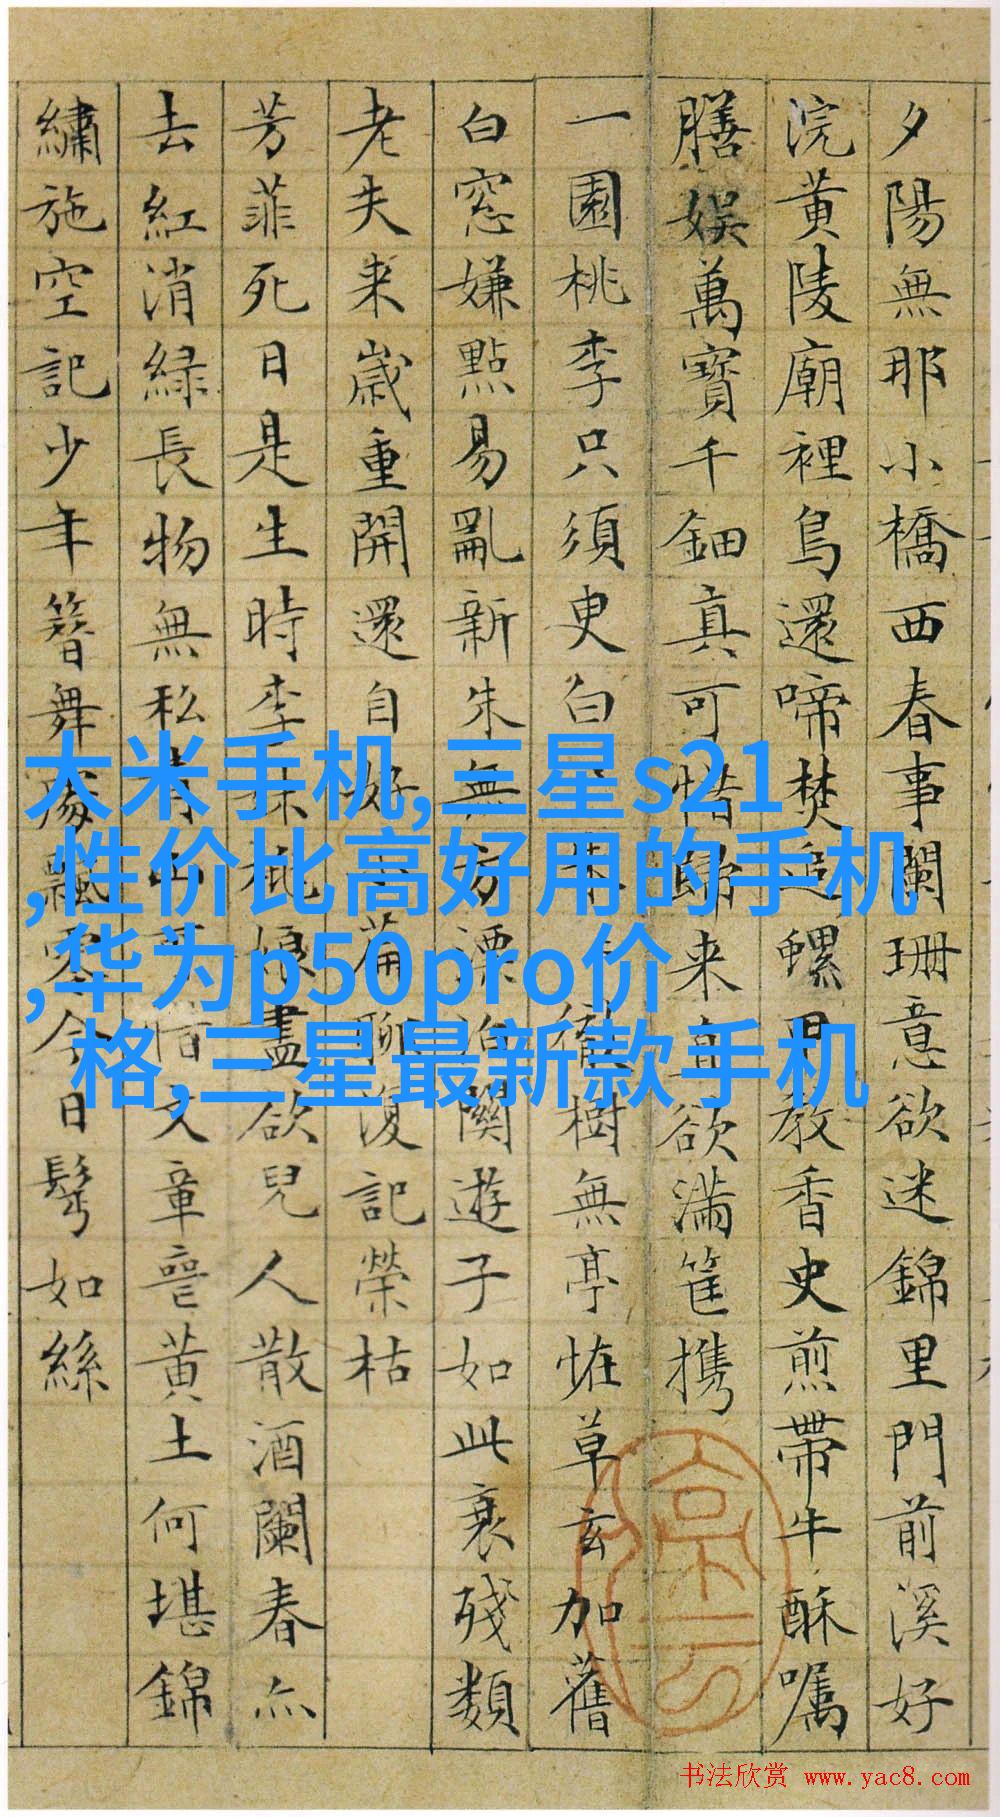 夕陽無那小橋西春事闌珊意欲迷錦里門前溪好
浣黄陵廟裡鳥還啼焚追螺甲教香史煎帶牛酥嘱
膳娱萬寶千鈿真可惜歸来直欲滿筐携
一園桃李只須臾白樹無亭恠草玄加舊
白窓嫌點易亂新朱無方漂泊關遊子如此衰殘類
老失来嵗重開還自好篇聊復記榮枯
芳菲死日是生時李妹桃娘盡欲兒人散酒闌春亦
去紅消緑長物無私青山可惜文章喪黄土何堪錦
繡施空記少年簪舞處飄零今日髩如絲
大米手机,三星s21
,性价比高好用的手机
,华为p50pro价
格,三星最新款手机
书法欣赏 www.yac8.com